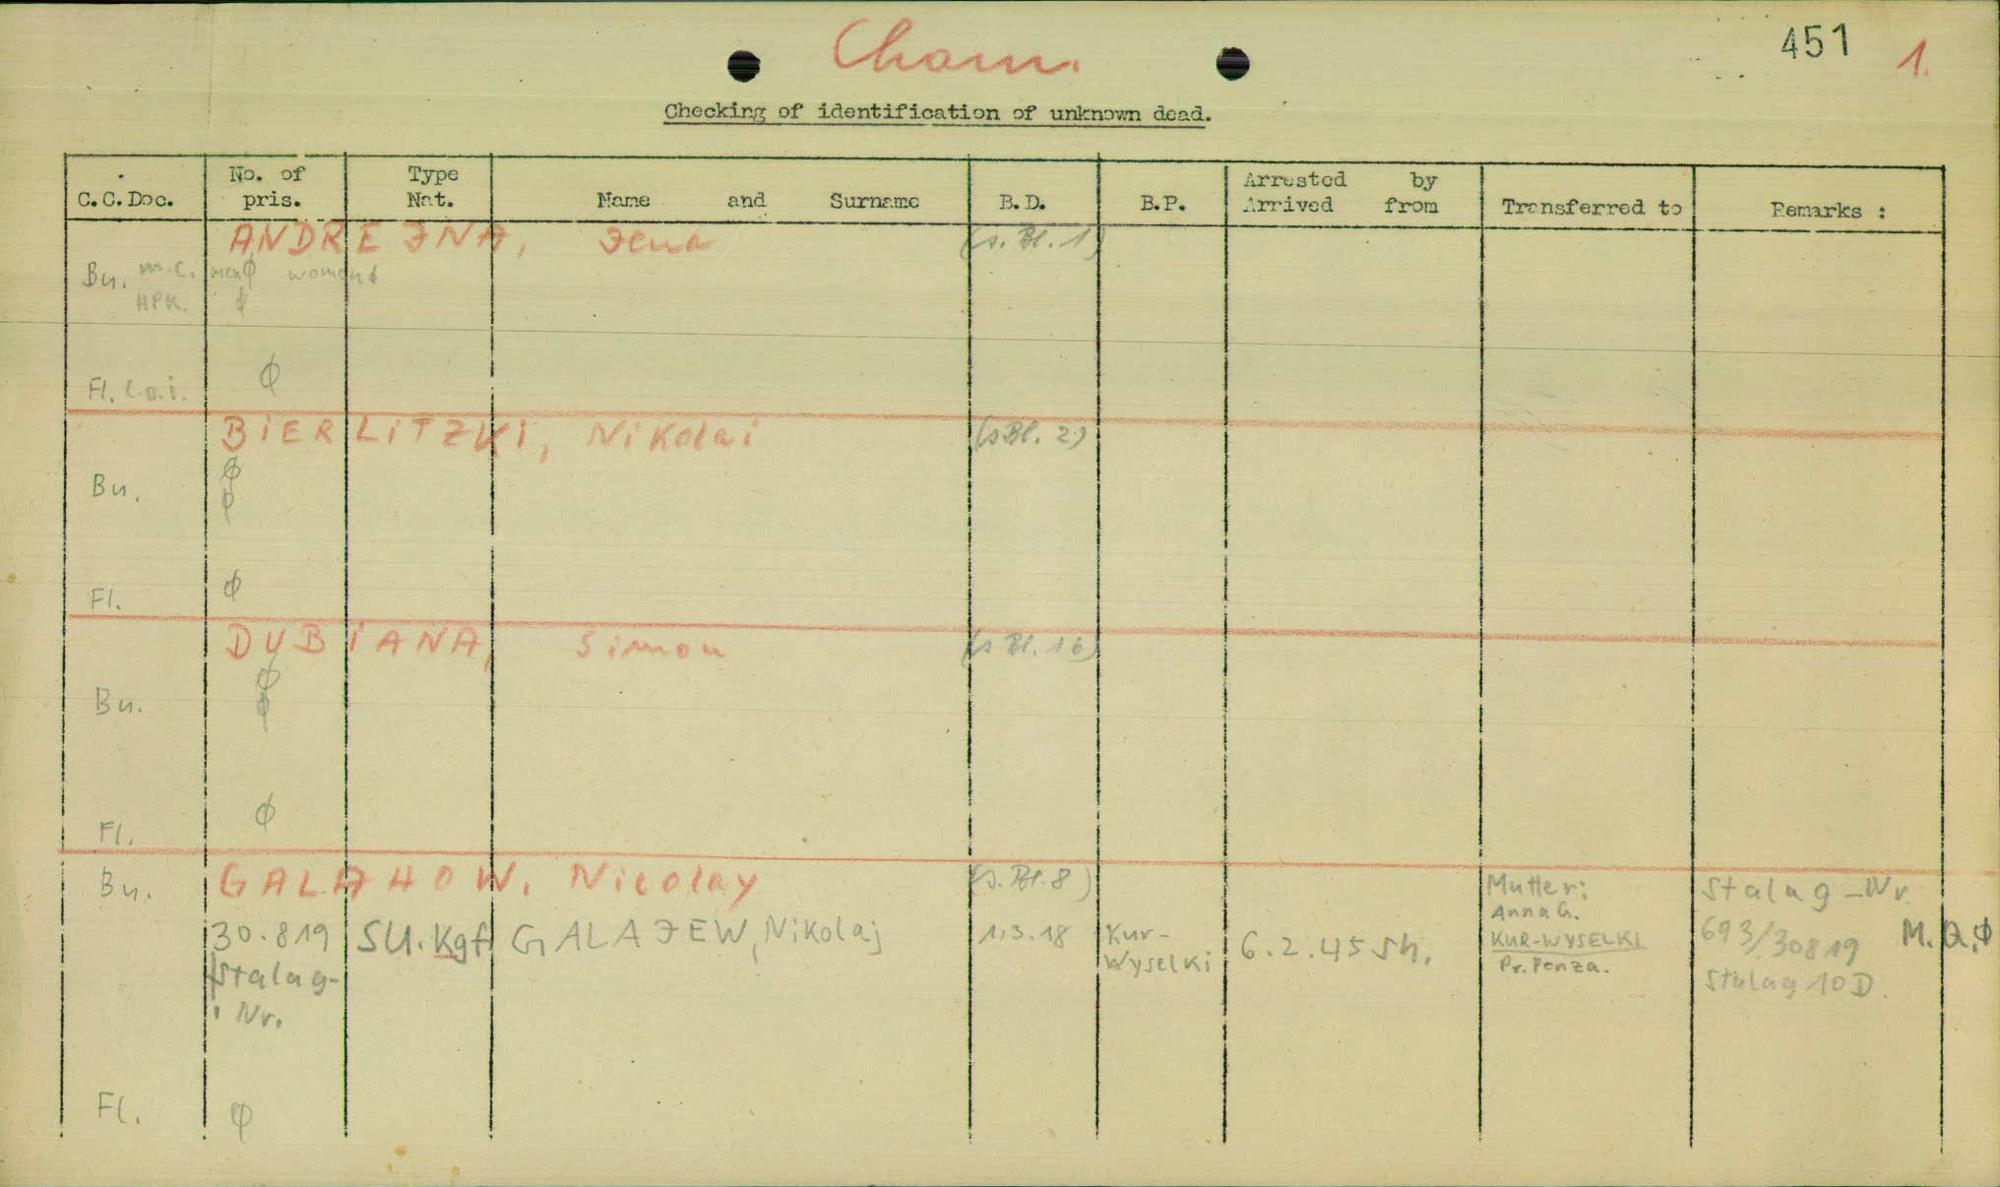 Cham.
451 1.
Checking of identification of unknown dead.
C.C.Doc. No. of pris. Type Nat. Name and Surname B.D. B.P. Arrested by Arrived from Transferred to Remarks :
ANDREJNA, Jena (s. Bl. 1)
Bu. m.c. men ϕ women ϕ
HPK. ϕ
Fl. c.o.i. ϕ
BIERLITZKI, Nikolai (s Bl. 2)
ϕ
Bu. ϕ
Fl. ϕ
DUBIANA, Simon (s Bl. 16)
ϕ
Bu. ϕ
Fl. ϕ
Bu. GALAHOW, Nicolay (s. Bl. 8) Mutter: Stalag-Nr
Anna G.
30.819 SU. Kgf GALAJEW, Nikolaj 1.3.18 Kur- 6.2.45 Sh. KUR-WYSELKI 693/30819 M.Q.ϕ
Stalag- Wyselki Pr. Penza. Stalag 10D.
Nr.
Fl. ϕ